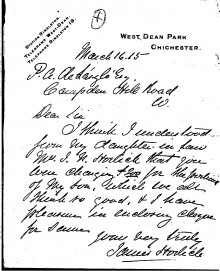 WEST DEAN PARK
CHICHESTER.
STATION SINGLETON.
TELEGRAMS WEST-DEAN.
TELEPHONE SINGLETON 19.
March 16.15
P. A. de László Esq.
Campden Hill Road
W.
Dear Sir
I think I understood
from my daughter in law
Mrs J. H. Horlick that you
were charging for the portrait
of my son, which we all
think so good, & I have
pleasure in enclosing cheque
for same
yours very truly
James Horlick